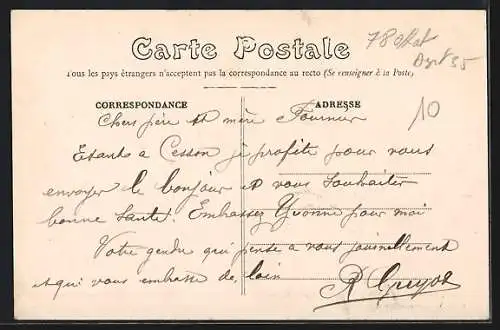 Carte Postale
Tous les pays étrangers n'acceptent pas la correspondance au recto (Se renseigner à la Poste)
CORRESPONDANCE
ADRESSE
10
Chers père et mère Fournier
Etant a Cesson je profite pour vous
envoyer le bonjour et vous souhaiter
bonne santé. Embrassez Yvonne pour moi
Votre gendre qui pense a vous journellement
et qui vous embrasse de loin
R Guyot